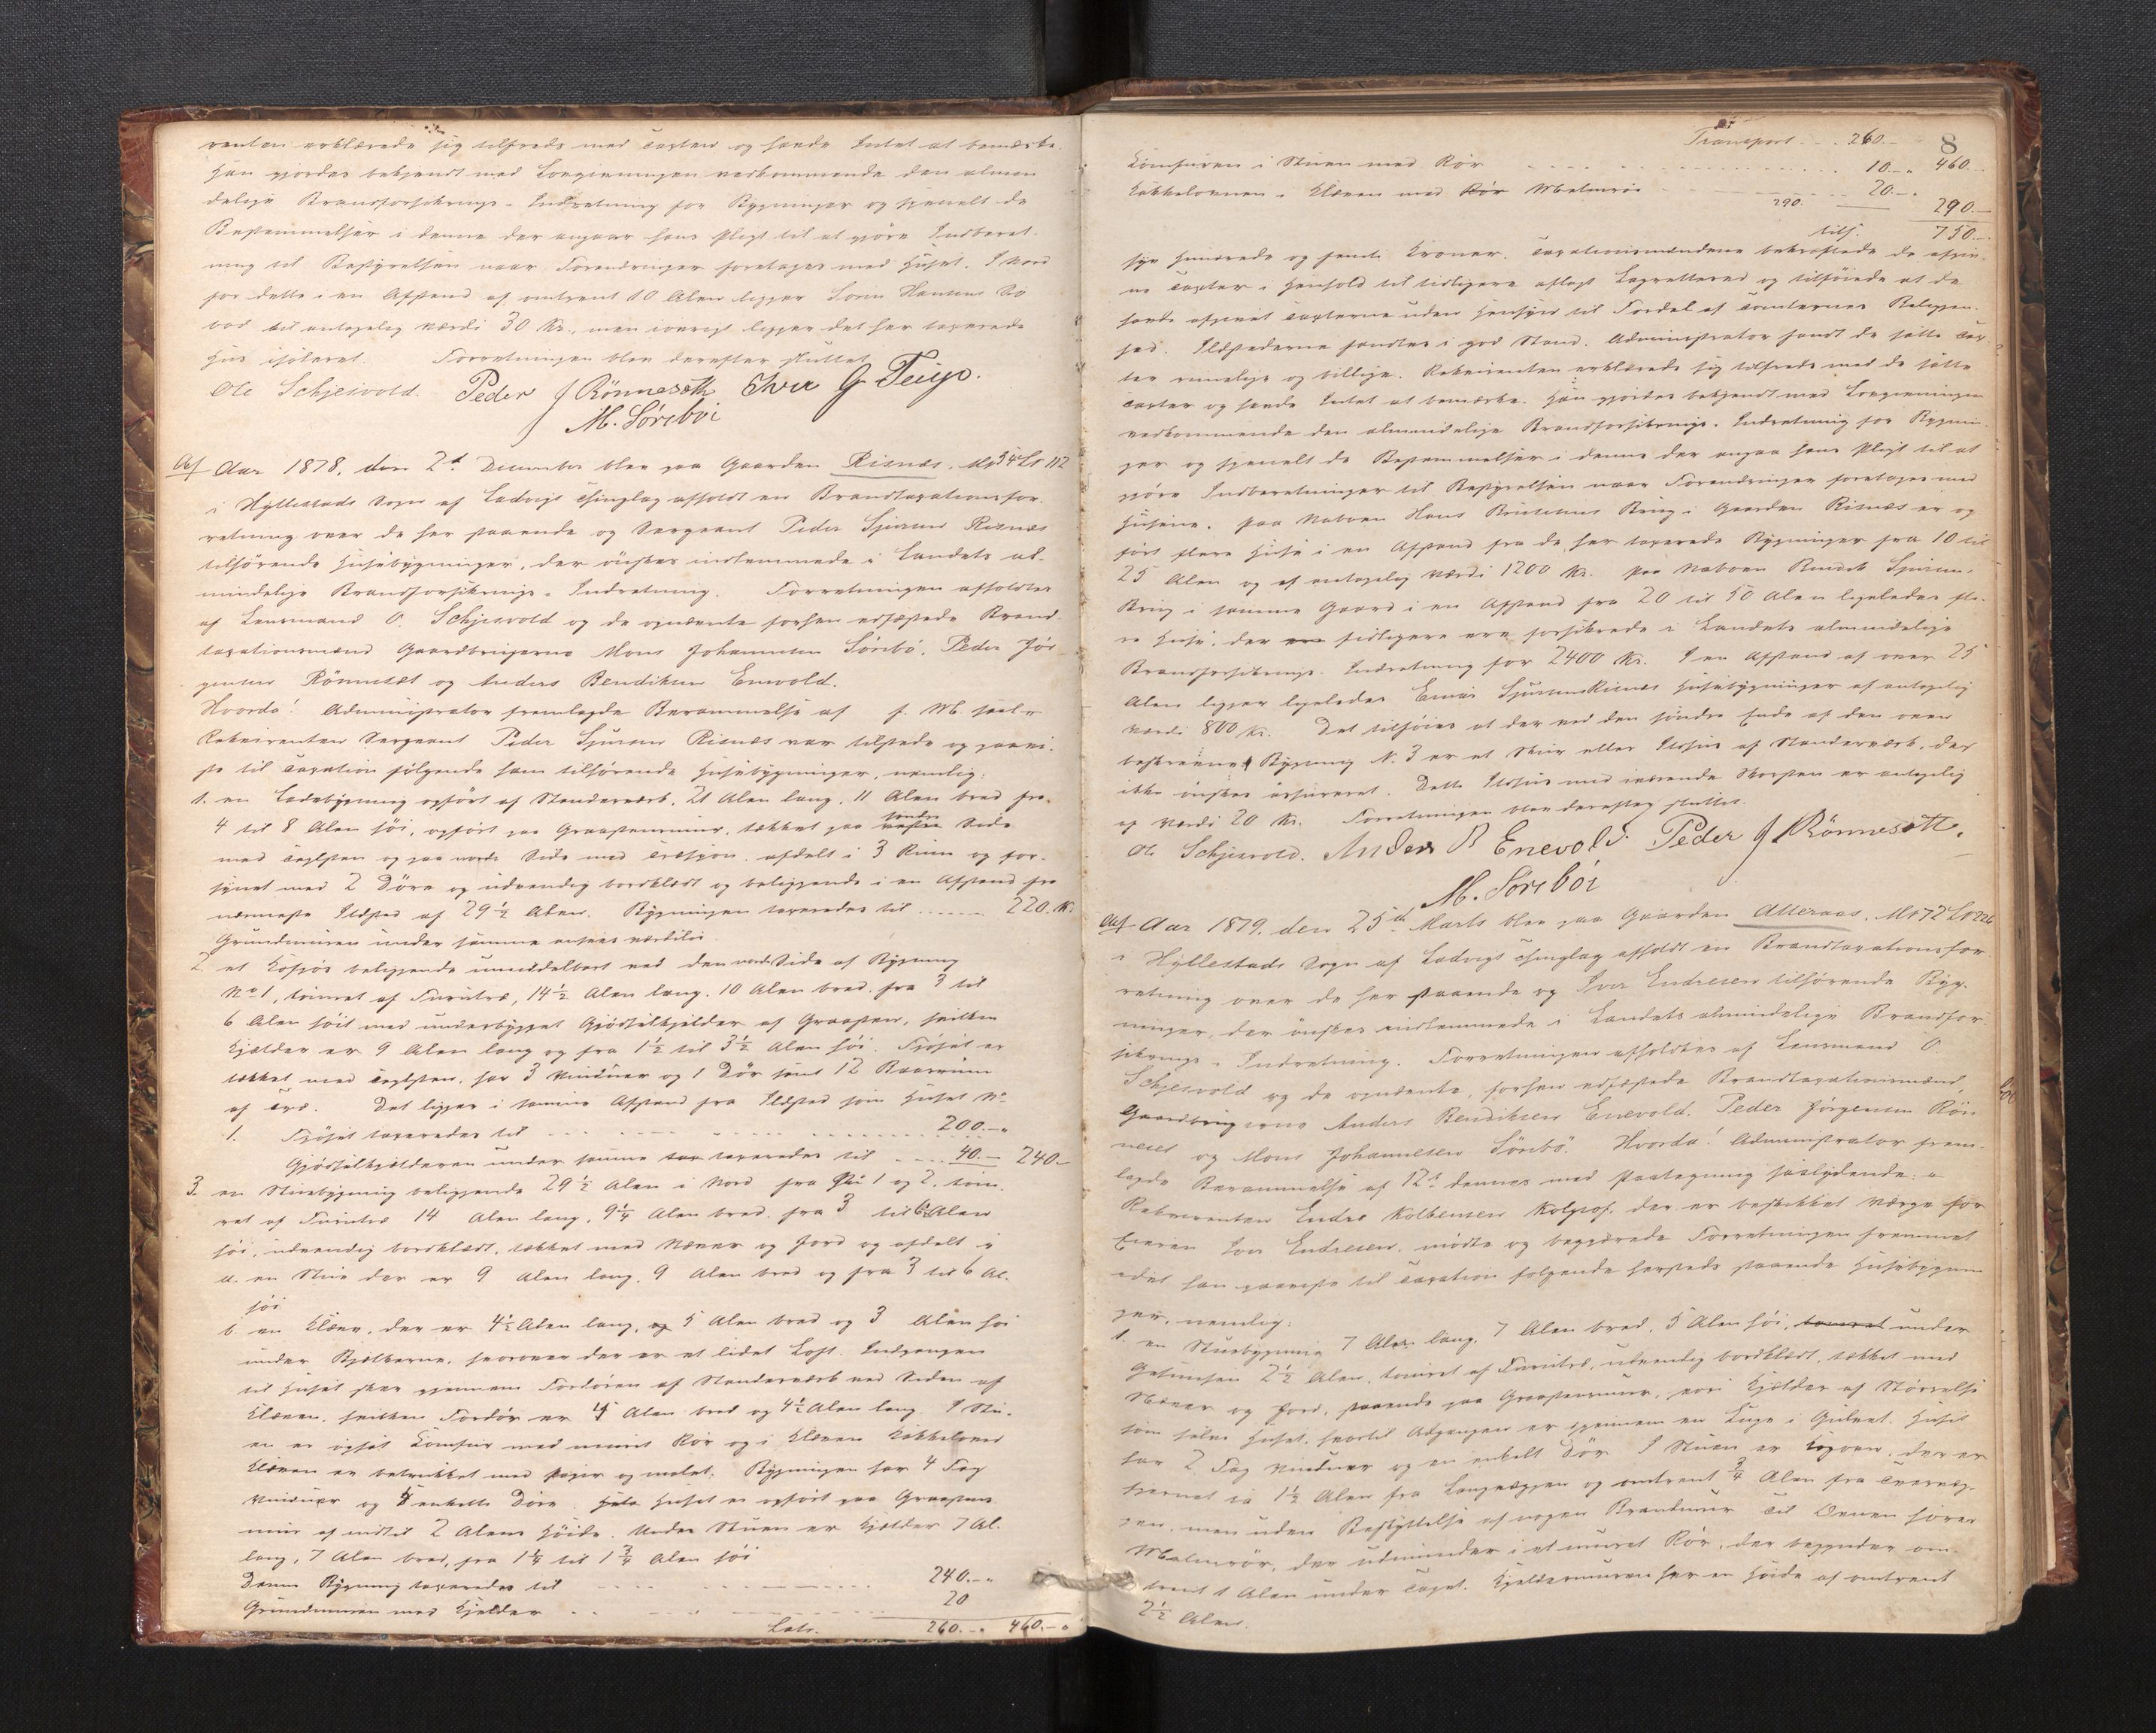 renten erklærede sig tilfreds med Taxten og havde Intet at bemærke.
Han gjordes bekjendt med Lovgivningen vedkommende den almin
delige Brandforsikrings-Indretning for Bygninger og specielt de
Bestemmelser i denne der angaar hans Pligt til at gjöre Indberet-
ning til Bestyrelsen naar Forandringer foretages med Huset. I Nord
for dette i en Afstand af omtrent 10 Alen ligger Sörin Hansens Sö
bod til antagelig Værdi 30 Kr., men iövrigt ligger det her taxerede
Hus isoleret. Forretningen blev derefter sluttet
Ole Schjesvold. Peder J Rönnesæth Iver G. Teige.
M. Söreböi
Act Aar 1878, den 2d December blev paa Gaarden Risnæs, M No 34 Lb 112
i Hyllestads Sogn af Ladvigs Thinglag afholdt en Brandtaxationsfor-
retning over de her staaende og Sergeant Peder Sjursen Risnæs
tilhörende Husebygninger, der önskes indlemmede i Landets al-
mindelige Brandforsikrings-Indretning. Forretningen afholdtes
af Lensmand O. Schjesvold og de opnævnte forhen edfæstede Brand
taxationsmænd Gaardbrugerne Mons Johannesen Sörebö, Peder Jör
gensen Rönneset og Anders Bendiksen Enevold.
Hvorda! Administrator fremlagde Berammelse af f. M. saal.
Rekvirenten Sergeant Peder Sjursen Risnæs var tilstede og paavi-
ste til Taxation fölgende ham tilhörende Husebygninger, nemlig:
1. en Ladebygning opfört af Stenderværk, 21 Alen lang, 11 Alen bred fra
4 til 8 Alen höi, opfört paa Graastensmuur, tækket paa söndre Side
med Taglsten og paa nordre Side med Træspon, afdelt i 3 Rum og for-
synet med 2 Döre og udvendig bordklædt og beliggende i en Afstand fra
nærmeste Ildsted af 29½ Alen. Bygningen taxeredes til ...... 220. Kr.
Grundmuren under samme ansees værdilös.
2. et Kofjös beliggende umiddelbart ved den nordre Side af Bygning
No 1, tömret af Furutræ, 14½ Alen lang, 10 Alen bred, fra 3 til
6 Alen höit med underbygget Gjödselkjelder af Graasten, hvilken
Kjælder er 9 Alen lang og fra 1½ til 3½ Alen höi. Fjöset er
tækket med Taglsten, har 3 Vinduer og 1 Dör samt 12 Baaserum
af Træ. Det ligger i samme Afstand fra Ildsted som Huset No
1. Fjöset taxeredes til ... 200.-"
Gjödselkjælderen under samme taxeredes til .... 40.- 240.-
3. en Stuebygning beliggende 29½ Alen i Nord fra Hus 1 og 2, töm-
ret af Furutræ 14 Alen lang, 9¼ Alen bred, fra 3 til 6 Alen
höi, udvendig bordklædt, tækket med Næver og Jord og afdelt i
a. en Stue der er 9 Alen lang, 9 Alen bred og fra 3 til 6 Al.
höi
b. en Kleve, der er 4½ Alen lang, 5 Alen bred og 3 Alen höi
under Bjelkerne, hvorover der er et lidet Loft. Indgangen
til Huset sker gjennem Fordören af Stenderværk ved Siden af
Kleven, hvilken Fordör er 4 Alen bred og 4½ Alen lang. I Stu-
en er opsat Komfur med muret Rör og i Kleven Kakkelovn
Kleven er betrukket med Papir og malet. Bygningen har 4 Fag
Vinduer og enkelte Döre. Huset er opfört paa Graastens
mur af indtil 2 Alens Höide. Under Stuen er Kjelder 7 Al.
lang, 7 Alen bred, fra 1¼ til 1¾ Alen höi
Denne Bygning taxeredes til ... 240.-"
Grundmuren med Kjelder ... 20
Lats. 260.-" 460.-"
8
Transport ... 260.-
Komfuren i Stuen med Rör ... 10.-" 460.-
Kakkelovnen i Kleven med Rör Malmrör ... 20.-
290. 290.-
tils. 750.-
syv Hundrede og femti Kroner. Taxationsmændene bekræftede de afgiv-
ne Taxter i Henhold til tidligere aflagt Lagretteed og tilföiede at de
havde afgivet Taxterne uden Hensyn til Fordel af Tomternes Beliggen-
hed. Ildstederne fandtes i god Stand. Administrator fandt de satte Tax-
ter rimelige og billige. Rekvirenten erklærede sig tilfreds med de satte
Taxter og havde Intet at bemærke. Han gjordes bekjendt med Lovgivningen
vedkommende den almindelige Brandforsikrings-Indretning for Bygnin-
ger og specielt de Bestemmelser i denne der angaa hans Pligt til at
gjöre Indberetninger til Bestyrelsen naar Forandringer foretages med
Husene. Paa Naboen Hans Brug i Gaarden Risnæs er op
fört flere Huse i en Afstand fra de her taxerede Bygninger fra 10 til
25 Alen og af antagelig Værdi 1200 Kr. Paa Naboen Sjursens
Brug i samme Gaard i en Afstand fra 20 til 50 Alen ligeledes fle-
re Huse, der tidligere ere forsikrede i Landets almindelige
Brandforsikrings-Indretning for 2400 Kr. I en Afstand af over 25
Alen ligger ligeledes Sjursens Risnæs Husebygninger af antagelig
Værdi 800 Kr. Det tilföies at der ved den söndre Ende af den oven
beskrevne Bygning N. 3 er et Skur eller Ildhus af Stenderværk, der
ikke önskes assureret. Dette Ildhus med iværende Skorsten er antagelig
af Værdi 20 Kr. Forretningen blev derefter sluttet.
Ole Schjesvold. Anders B Enevold. Peder J Rönnesætt.
M. Söreböi
Act Aar 1879, den 25d Marts blev paa Gaarden Atteraas, M No 72 Lb 226
i Hyllestads Sogn af Ladvigs Thinglag afholdt en Brandtaxationsfor
retning over de her staaende og Iver Endresen tilhörende Byg-
ninger, der önskes indlemmede i Landets almindelige Brandfor-
sikrings-Indretning. Forretningen afholdtes af Lensmand O.
Schjesvold og de opnævnte, forhen edfæstede Brandtaxationsmænd,
Gaardbrugerne Anders Bendiksen Enevold, Peder Jörgensen Rön
neset og Mons Johannesen Sörebö. Hvorda! Administrator frem-
lagde Berammelse af 12d dennes med Paategning saalydende:
Rekvirenten Endre Kolbensen, der er beskikket Værge for
Eieren Iver Endresen, mödte og begjærede Forretningen fremmet
idet han paaviste til Taxation fölgende hersteds staaende Husebygnin
ger, nemlig:
1. en Stuebygning 7 Alen lang, 7 Alen bred, 5 Alen höi, tömret under
Gesimsen 2½ Alen, tömret af Furutræ, udvendig bordklædt, tækket med
Næver og Jord, staaende paa Graastensmuur, hvori Kjelder af Störrelse
som selve Huset, hvortil Adgangen er gjennem en Luge i Gulvet. Huset
har 2 Fag Vinduer og en enkelt Dör. I Stuen er Kogovn, der er
fjernet ca 1½ Alen fra Langvæggen og omtrent ¾ Alen fra Tvervæg-
gen, men uden Beskyttelse af nogen Brandmur. Til Ovnen hörer
Malmrör, der udmunder i et muret Rör, der begynder om-
trent 1 Alen under Taget. Kjeldermuren har en Höide af omtrent
2½ Alen.